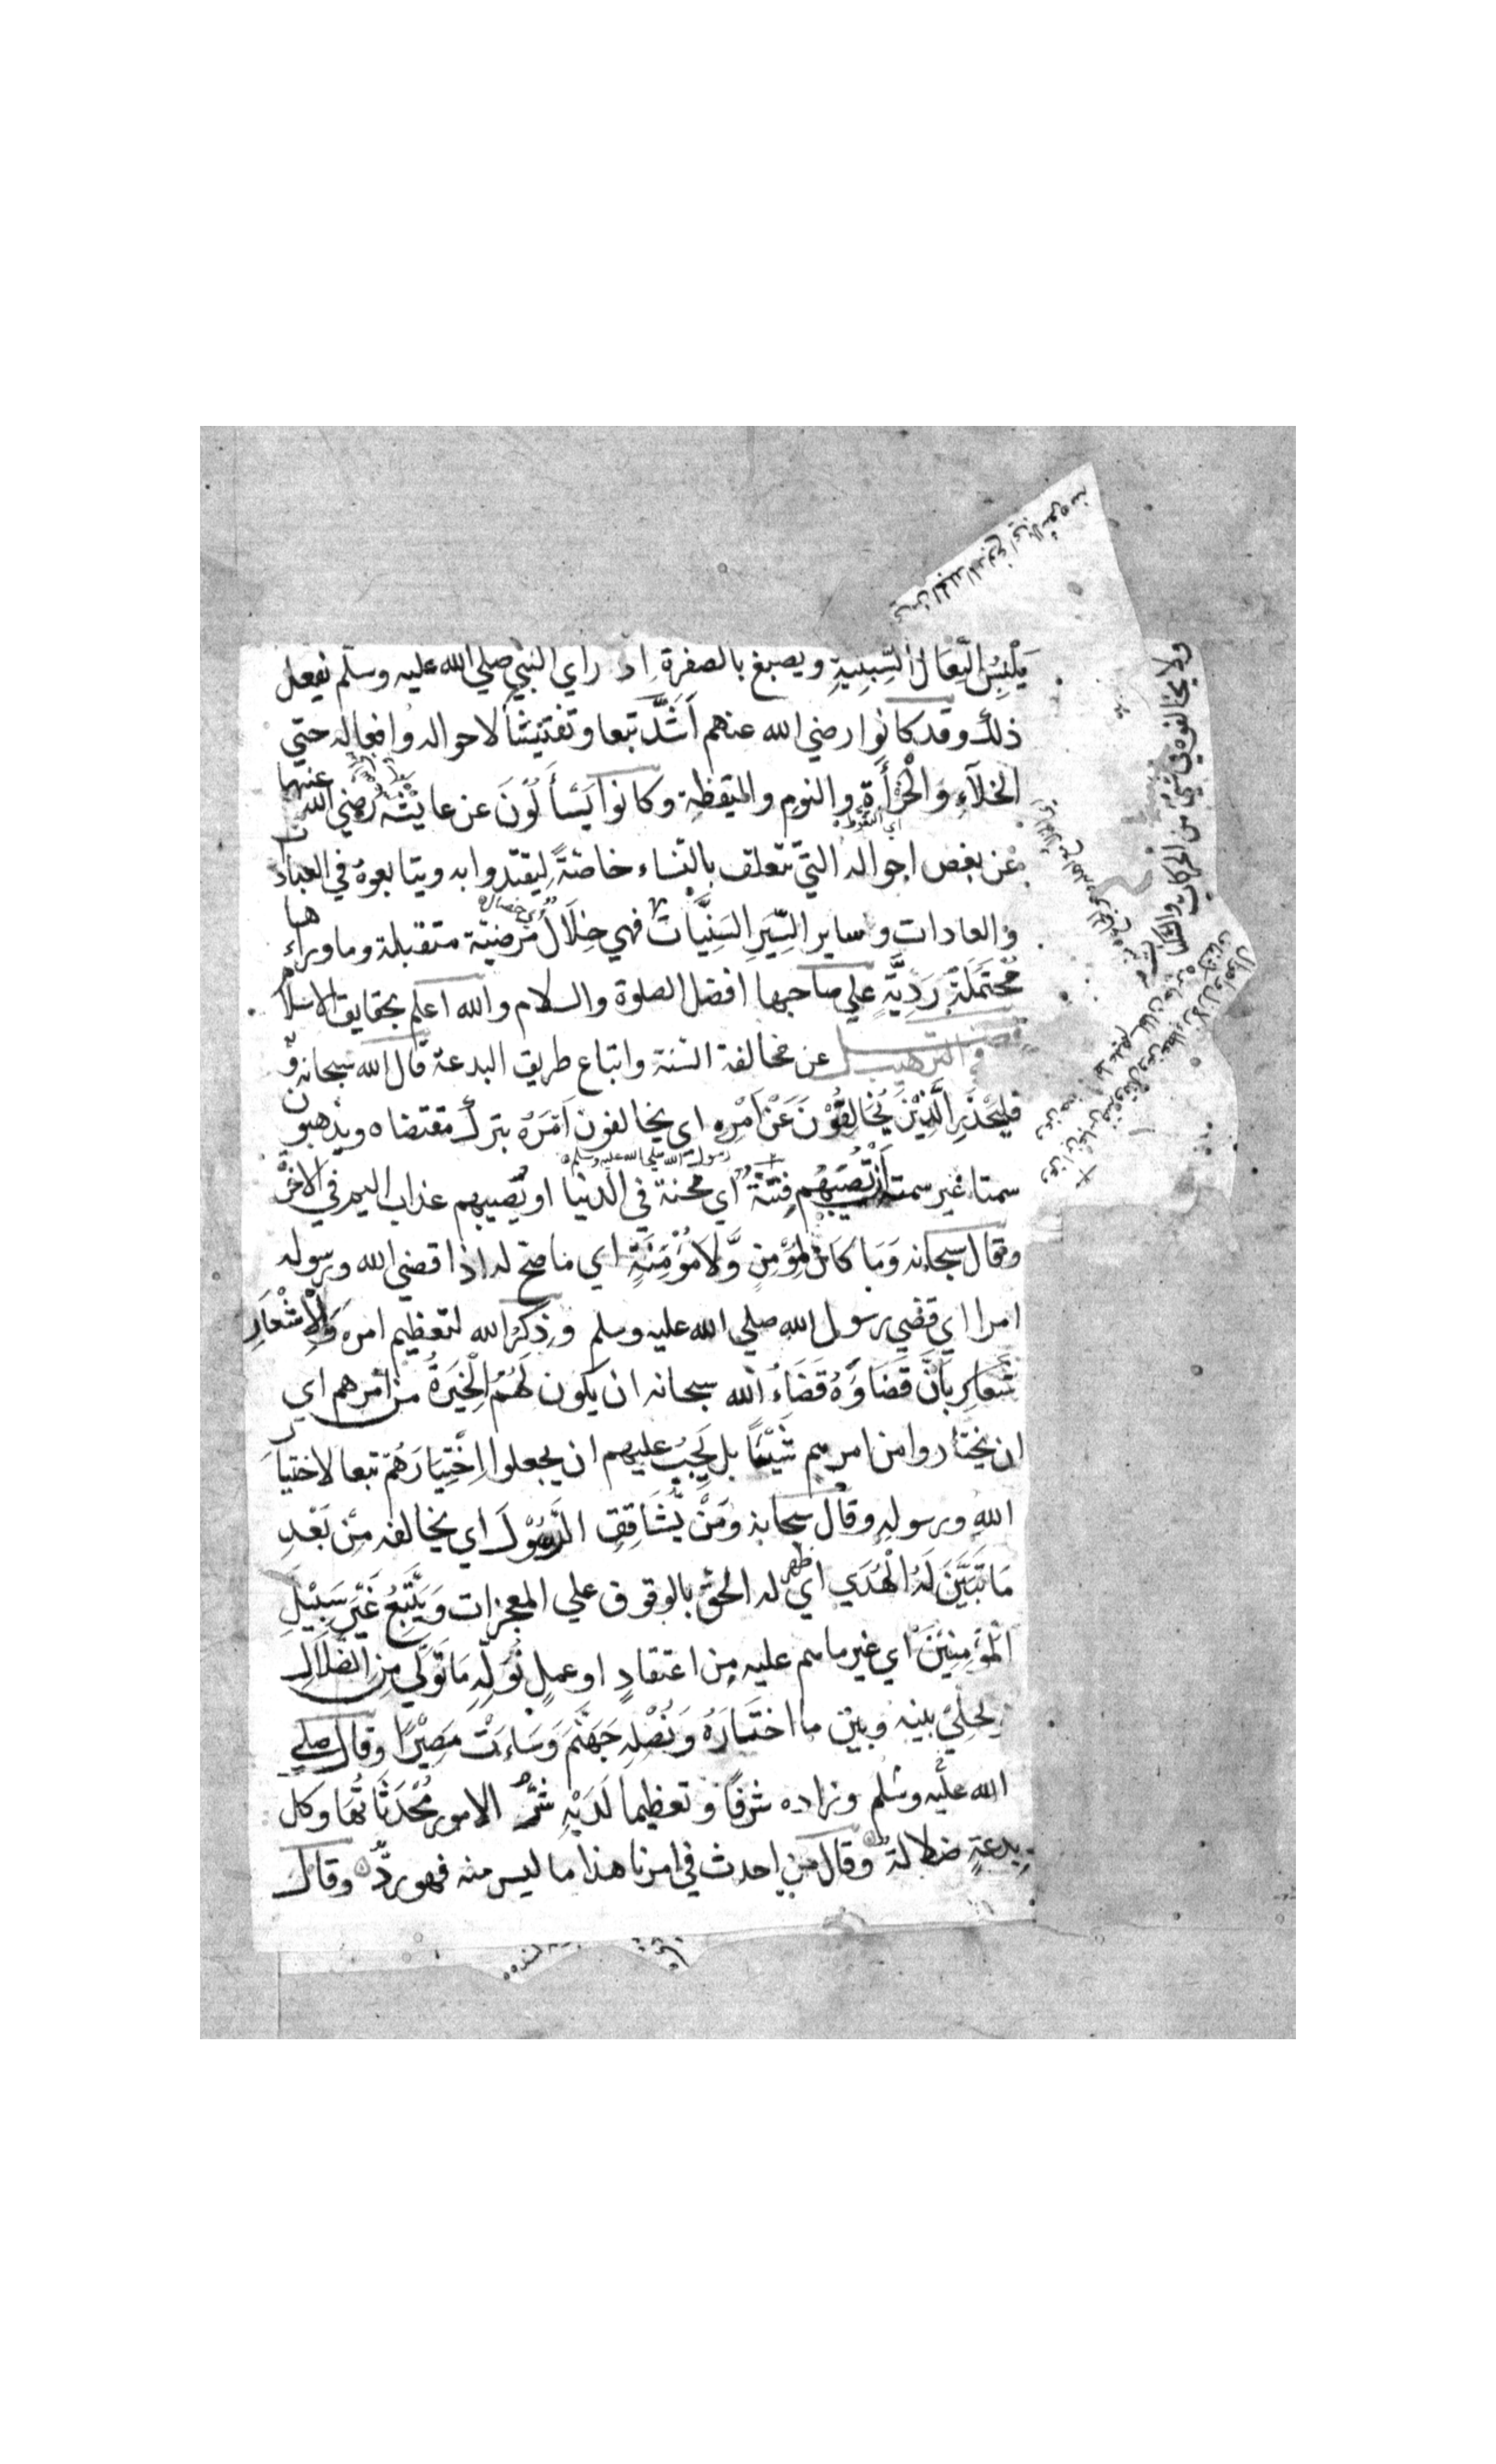 يَلْبِسُ النِّعَالَ السِّبِتِيةِ ويصبغ بالصفرة اذ راي النبي صلي الله عليه وسلم يفعل
ذلك وقد كانوا رضي الله عنهم اَشَدَّ تبعا وتفتيشا لاحواله وافعاله حتي
الخلآءِ وَالْخَرْأَةِ والنوم واليقظة وكانوا يَسْأَلُوْنَ عن عايشة رضي الله عنها
اي التغوط
عن بعض احواله التي تتعلق بالنساء خاصّةً لِيقتدوا به ويتابعوهُ في العبادات
والعادات وساير السِّيَرِ السَنِيَّات فهي خِلَالٌ مرضيّة متقبلة وما وراءها
اي خصال
مُحْتَمَلَة رَدِيَّةٍ علي صاحبها افضل الصلوة والسلام والله اعلم بحقايق الاسلام
في الترهيب عن مخالفة السنة واتباع طريق البدعة قال الله سبحانه
فليحْذَرِ الَّذِيْنَ يُخَالِفُوْنَ عَنْ اَمْرِهِ اي يخالفون اَمْرَهُ بترك مقتضاه ويذهبون
رسول الله صلي الله عليه وسلم
سمتا غير سمته اَنْ تُصِيْبَهُم فِتْنَةٌ اي محنة في الدنيا او يُصيبهم عذاب اليم في الاخرة
وقال سبحانه وَمَا كَانَ لِمُؤْمِنٍ وَّلَا مُؤْمِنَةٍ اي ما صح له اذا قضي الله ورسوله
امرا اي قضي رسول الله صلي الله عليه وسلم وذِكرُ الله لتعظيم امره وَالْاِشْعَارِ
بأنَّ قَضَاؤَهُ قَضَاءُ الله سبحانه ان يكون لَهُمُ الْخِيَرَةُ من امرهم اي
ان يختاروا من امرهم شَيْئًا بل يَجِبُ عليهم ان يجعلوا اِخْتِيَارَهُمْ تبعا لاختيار
اللهِ ورسولهِ وقال سبحانه ومَنْ يُّشَاقِقِ الرَّسُوْلَ اي يخالفه مِنْ بَعْدِ
مَا تَبَيَّنَ لَهُ الْهُدَي اي ظهر له الحق بالوقوف علي المعجزات وَيَتَّبِعْ غَيْرَ سَبِيْلِ
الْمُؤْمِنِيْنَ اي غير ما هم عليه مِن اعتقادٍ او عملٍ نُوَلِّهِ مَا تَوَلّي مِن الضَّلَالِ
يخلِّي بينه وبين ما اختَارَهُ وَنُصْلِهِ جَهَنَّمَ وَسَاءَتْ مَصِيْرًا وقال صلي
الله عليه وسلم وزاده شرفًا وتعظيما لَدَيْهِ شَرُّ الامور مُحْدَثَاتُهَا وكل
بِدعةٍ ضلالة وقال من احدث في امرنا هذا ما ليس منه فهو ردٌّ وقال
ولا يخالفوه في شيء من الحركات والسكنات